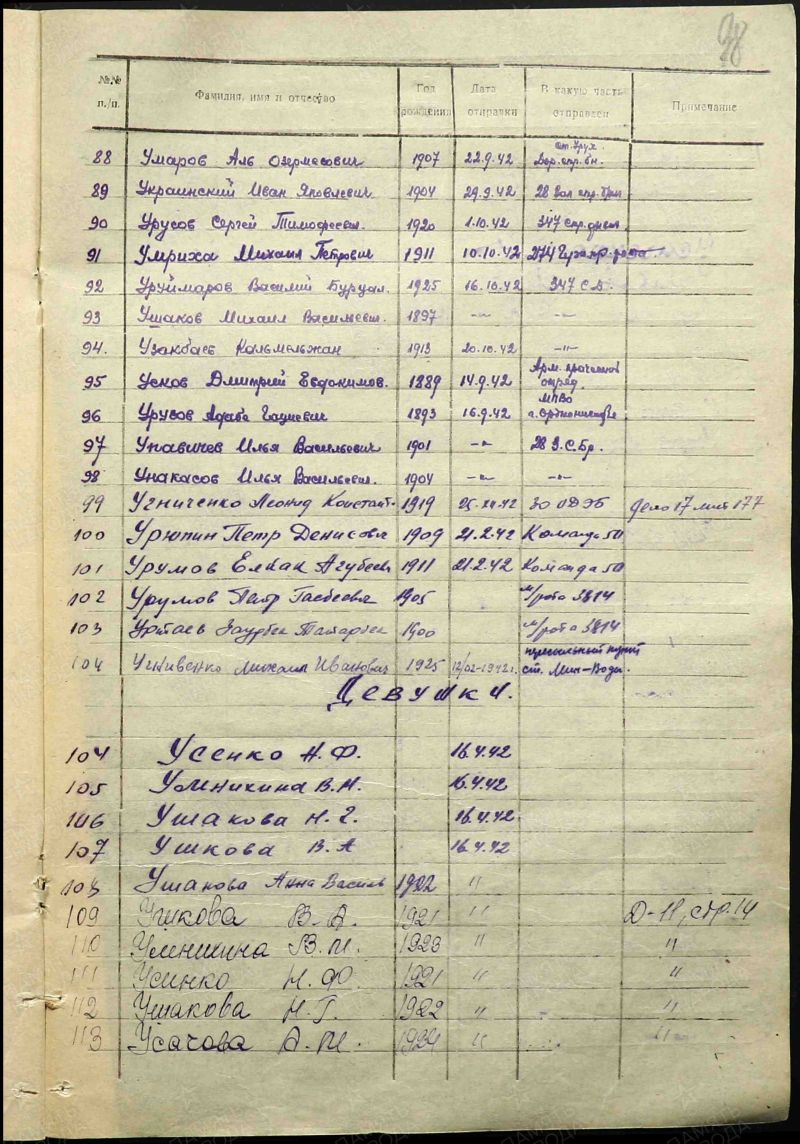 98
№№ п/п. Фамилия, имя и отчество Год рождения Дата отправки В какую часть отправлен Примечание
88 Умаров Аль 1907 22.9.42
89 Украинский Иван Яковлевич 1904 29.9.42 28 Зап стр. бриг
90 Урусов Сергей Тимофеевич. 1920 1.10.42 347 стр. дивиз.
91 Умриха Михаил Петрович 1911 10.10.42 274
92 Уруймаров Василий 1925 16.10.42 347 С.Д.
93 Ушаков Михаил Васильевич. 1897 -"- -"-
94. Узакбаев Кальмельжан 1913 20.10.42 -"-
95 Усков Дмитрий Евдокимов. 1889 14.9.42 Арм. прачечной отряд
96 Урусов 1893 16.9.42 МПВО г. Орджоникидзе
97 Упавичев Илья Васильевич 1901 -"- 28 З.С.Бр.
98 Унакасов Илья Васильевич. 1904 -"- -"-
99 Угниченко Леонид Констант. 1919 42 30 ОДЭБ Дело 17 лист 177
100 Урюпин Петр Денисович 1909 21.2.42 Команда 50
101 Урумов 1911 21.2.42 Команда 50
102 Урумов Петр 1905 М/рота 5814
103 Уртаев Заурбек 1900 М/рота 5814
104 Михаил Иванович 1925 12/02-1942г. пересыльный пункт ст. Мин-Воды.
Девушки.
104 Усенко Н.Ф. 16.4.42
105 Умникина В.М. 16.4.42
106 Ушакова Н.Г. 16.4.42
107 Ушкова В.А 16.4.42
108 Ушакова Анна Василь 1922 "
109 Ушкова В.А. 1921 " Д-11, стр. 14
110 Умникина В.М. 1923 " "
111 Усинко Н.Ф. 1921 " "
112 Ушакова Н.Г. 1922 " "
113 Усачова А.М. 1924 " "